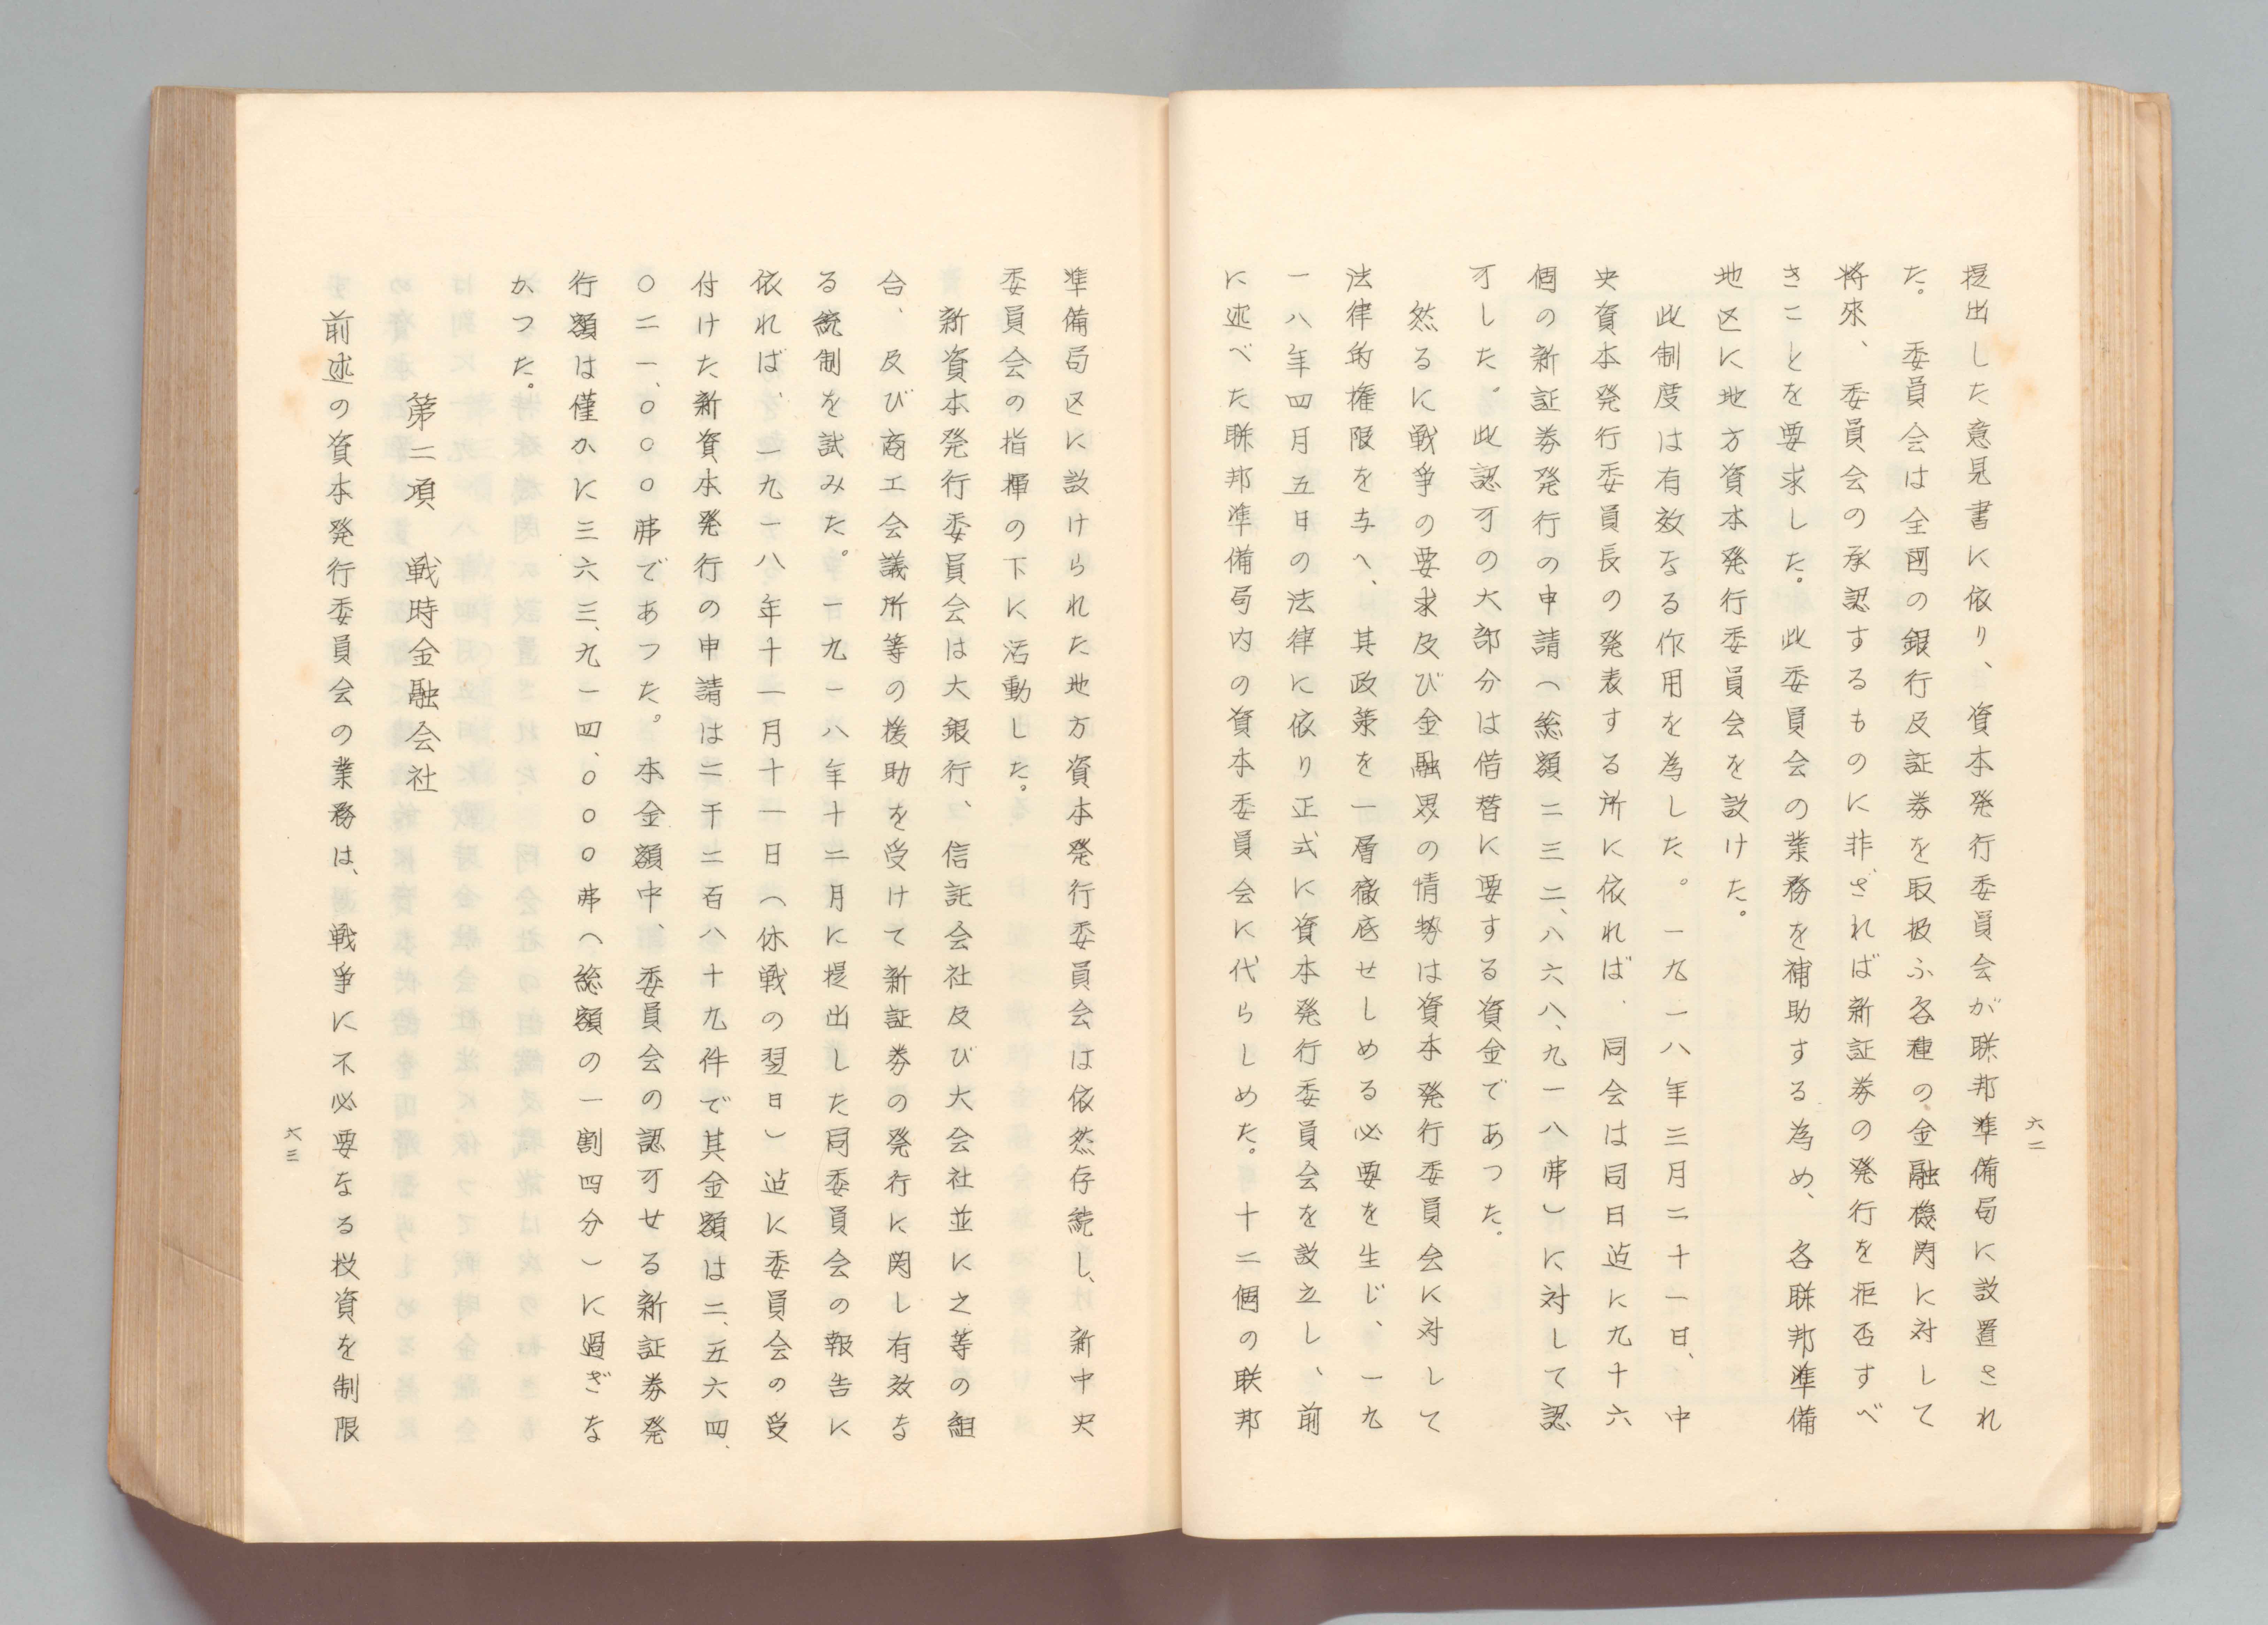 六二
提出した意見書に依り、資本発行委員会が聯邦準備局に設置され
た。委員会は全國の銀行及証券を取扱ふ各種の金融機関に対して
将來、委員会の承認するものに非ざれば新証券の発行を拒否すべ
きことを要求した。此委員会の業務を補助する為め、各聯邦準備
地区に地方資本発行委員会を設けた。
此制度は有效なる作用を為した。一九一八年三月二十一日、中
央資本発行委員長の発表する所に依れば、同会は同日迠に九十六
個の新証券発行の申請(総額二三二、八六八、九一八弗)に対して認
可した。此認可の大部分は借替に要する資金であつた。
然るに戦争の要求及び金融界の情勢は資本発行委員会に対して
法律的権限を与へ、其政策を一層徹底せしめる必要を生じ、一九
一八年四月五日の法律に依り正式に資本発行委員会を設立し、前
に述べた聯邦準備局内の資本委員会に代らしめた。十二個の联邦
準備局区に設けられた地方資本発行委員会は依然存続し、新中央
委員会の指揮の下に活動した。
新資本発行委員会は大銀行、信託会社及び大会社並に之等の組
合、及び商工会議所等の援助を受けて新証券の発行に関し有效な
る統制を試みた。一九一八年十二月に提出した同委員会の報告に
依れば、一九一八年十一月十一日(休戦の翌日)迠に委員会の受
付けた新資本発行の申請は二千二百八十九件で其金額は二、五六四、
〇二一、〇〇〇弗であつた。本金額中、委員会の認可せる新証券発
行額は僅かに三六三、九一四、〇〇〇弗(総額の一割四分)に過ぎな
かつた。
第二項 戦時金融会社
前述の資本発行委員会の業務は、戦争に不必要なる投資を制限
六三